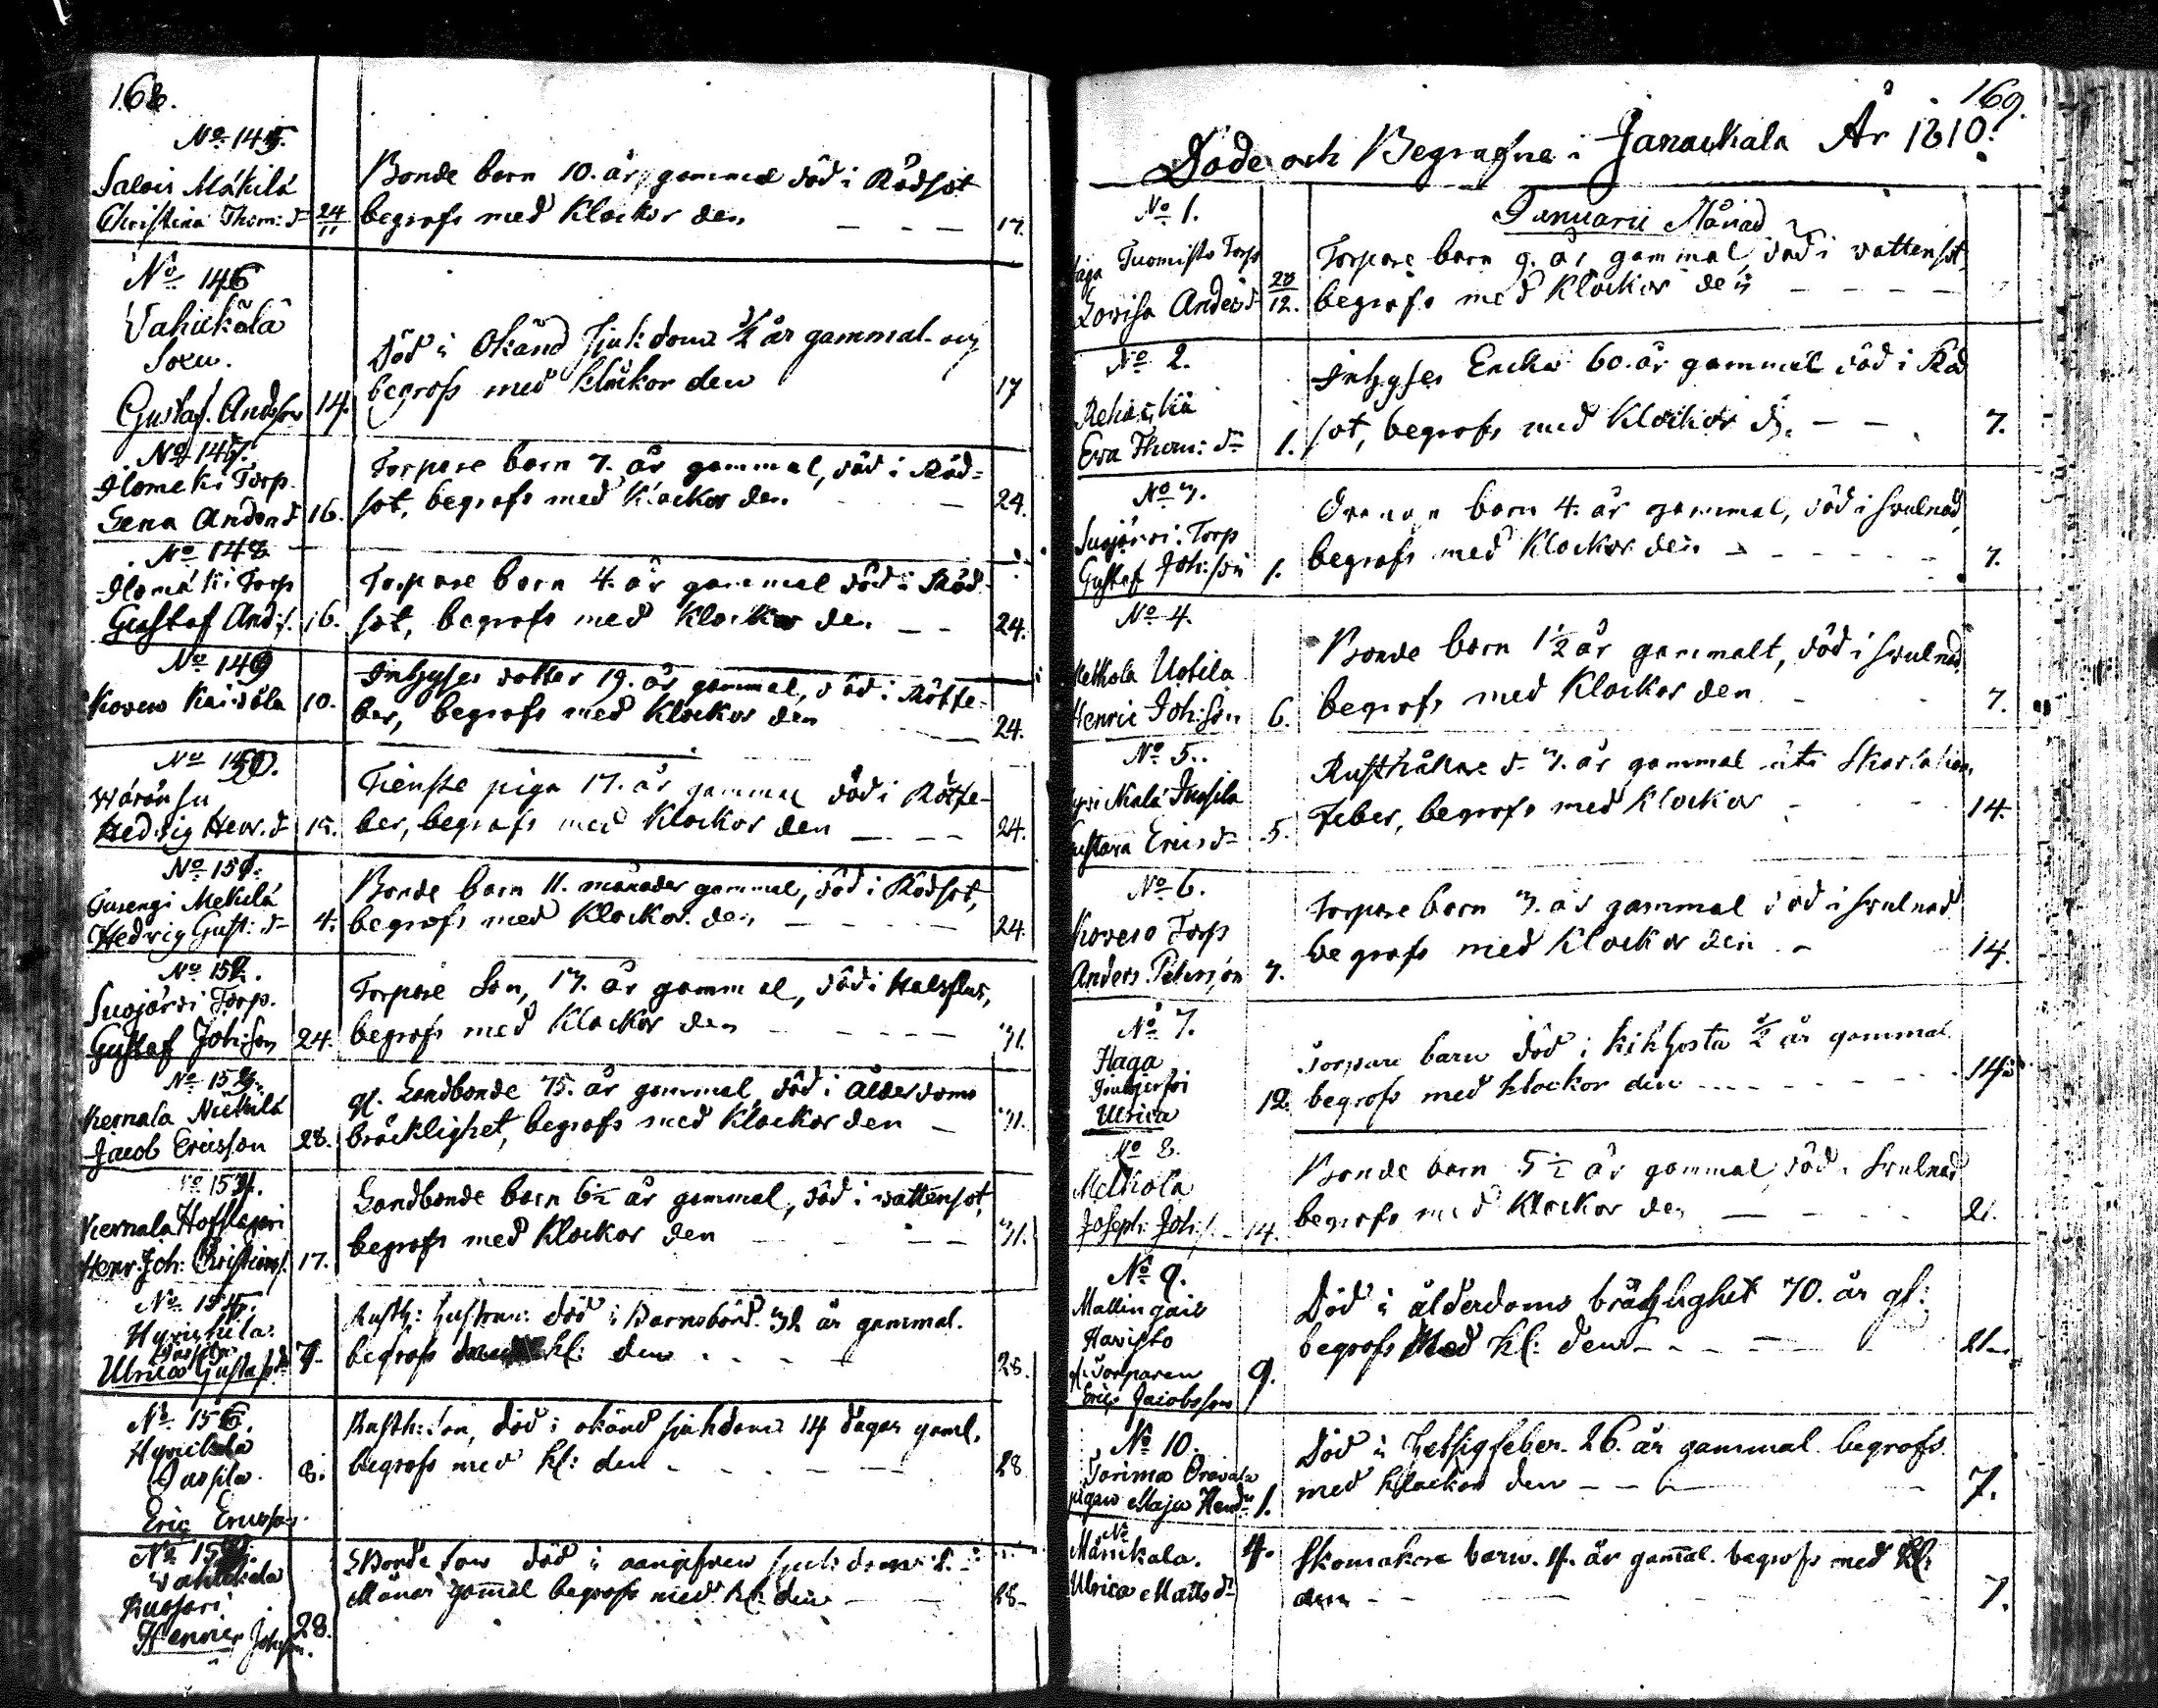 168.
No 145.
Salois Mäkilä
Christina Thom: d 24/11
Bonde barn 10. år gammal död i Rödsot
begrofs med Klockor den — — — 17.
No 146
Vahickälä
Soen.
Gustaf Andsson 14.
Död i Okänd Sjukdom 1/2 år gammal och
begrofs med klåckor den 17
No 147.
Ilomeki Torp.
Lena Andersd 16.
Torpare barn 7. år gammal, död i Röd-
sot, begrofs med Klockor den — 24.
No 148
Ilomäki Torp
Gustaf And:s. 16.
Torpare barn 4. år gammal död i Röd-
sot, begrofs med Klockor den — — 24.
No 149
Kovero Kaivola 10.
Inhyses dotter 19. år gammal, död i Rötfe-
ber, begrofs med Klockor den — 24.
No 150.
Hedvig Henr. d 15.
Tienste piga 17. år gammal död i Rötfe-
ber, begrofs med Klockor den — — — 24.
No 151.
Turengi Mekilä
Hedvig Gust: d 4.
Bonde barn 11. månader gammal, död i Rödsot,
begrofs med Klockor den — — — 24.
No 152.
Suojärvi Torp.
Gustaf Joh:son 24.
Torpare Son, 13. år gammal, död i Halsflus,
begrofs med Klockor den — — — 31.
No 153.
Kernala Nickilä
Jacob Ericsson 28.
gl. Landbonde 75. år gammal, död i ålderdoms
bräcklighet, begrofs med Klockor den — 31.
No 154.
Kernala Hofslageri
Henr. Joh: Christians. 17.
Landbonde barn 6 1/2 år gammal, död i vattensot,
begrofs med Klockor den — — 31.
No 155.
Hyrickila
Jussila
Ulrica Gustafsdr 7.
Rusth: hustrun: död i Barnsbörd. 32 år gammal.
begrofs med kl: den . . . . 28.
No 156.
Hyrickala
Jussila 8.
Eric Ericsson
Rusth: Son, död i okänd sjukdom 14 dagar gaml.
begrofs med kl: den - - - 28
No 157.
Vahickala
Kussari
Henric Johsson. 28.
Bonde son död i sjukdom
Månar gammal begrofs med kl: den — — 28-
169.
Döde och Begrafne i Janackala År 1810.
Januarii Månad
No 1.
Haga Tuomisto Torp
Lovisa Anders d 28/12.
Torpare barn 9. år gammal, död i vattensot,
begrofs med Klockor den — — — —
No 2.
Rehackä
Eva Thom: dr 1.
Inhyses Encka 60. år gammal död i Röd
sot, begrofs med Klockor d. — — 7.
No 3.
Suojärvi Torp
Gustaf Joh:son 1.
barn 4. år gammal, död i svulnad,
begrofs med Klockor den — — — 7.
No 4.
Melkola Uotila
Henric Joh:son 6.
Bonde barn 1 1/2 år gammalt, död i svulnad,
begrofs med Klockor den 7.
No 5.
Hyrickälä Jussila
Gustava Erics dr 5.
Rusthållare d. 3. år gammal uti Skarlakan
Feber, begrofs med Klockor 14.
No 6.
Kovero Torp
Anders Petersson 7.
Torpare barn 3. år gammal död i svulnad
begrofs med Klockor den — 14.
No 7.
Haga
Ulrica 12.
Torpare barn död i kikhosta 1/2 år gammal
begrofs med klockor den - - - - 14.
No 8.
Melkola
Joseph Joh:s. 14.
Bonde barn 5 1/2 år gammal, död i svulnad
begrofs med Klockor den — — 21.
No 9.
Mallingais
Havisto
gl: Torparen
Eric Jacobsson 9.
Död i ålderdoms bräcklighet 70. år gl:
begrofs Med kl: den - - — 21
No 10.
Tarima Oravala
pigan Maja Hendr 1.
Död i hetsig feber. 26. år gammal. begrofs
med klockor den - - - 7.
No
Mänikala. 4.
Ulrica Matts dr
Skomakare barn. 4. år gammal. begrofs med kl:
den - - - - 7.